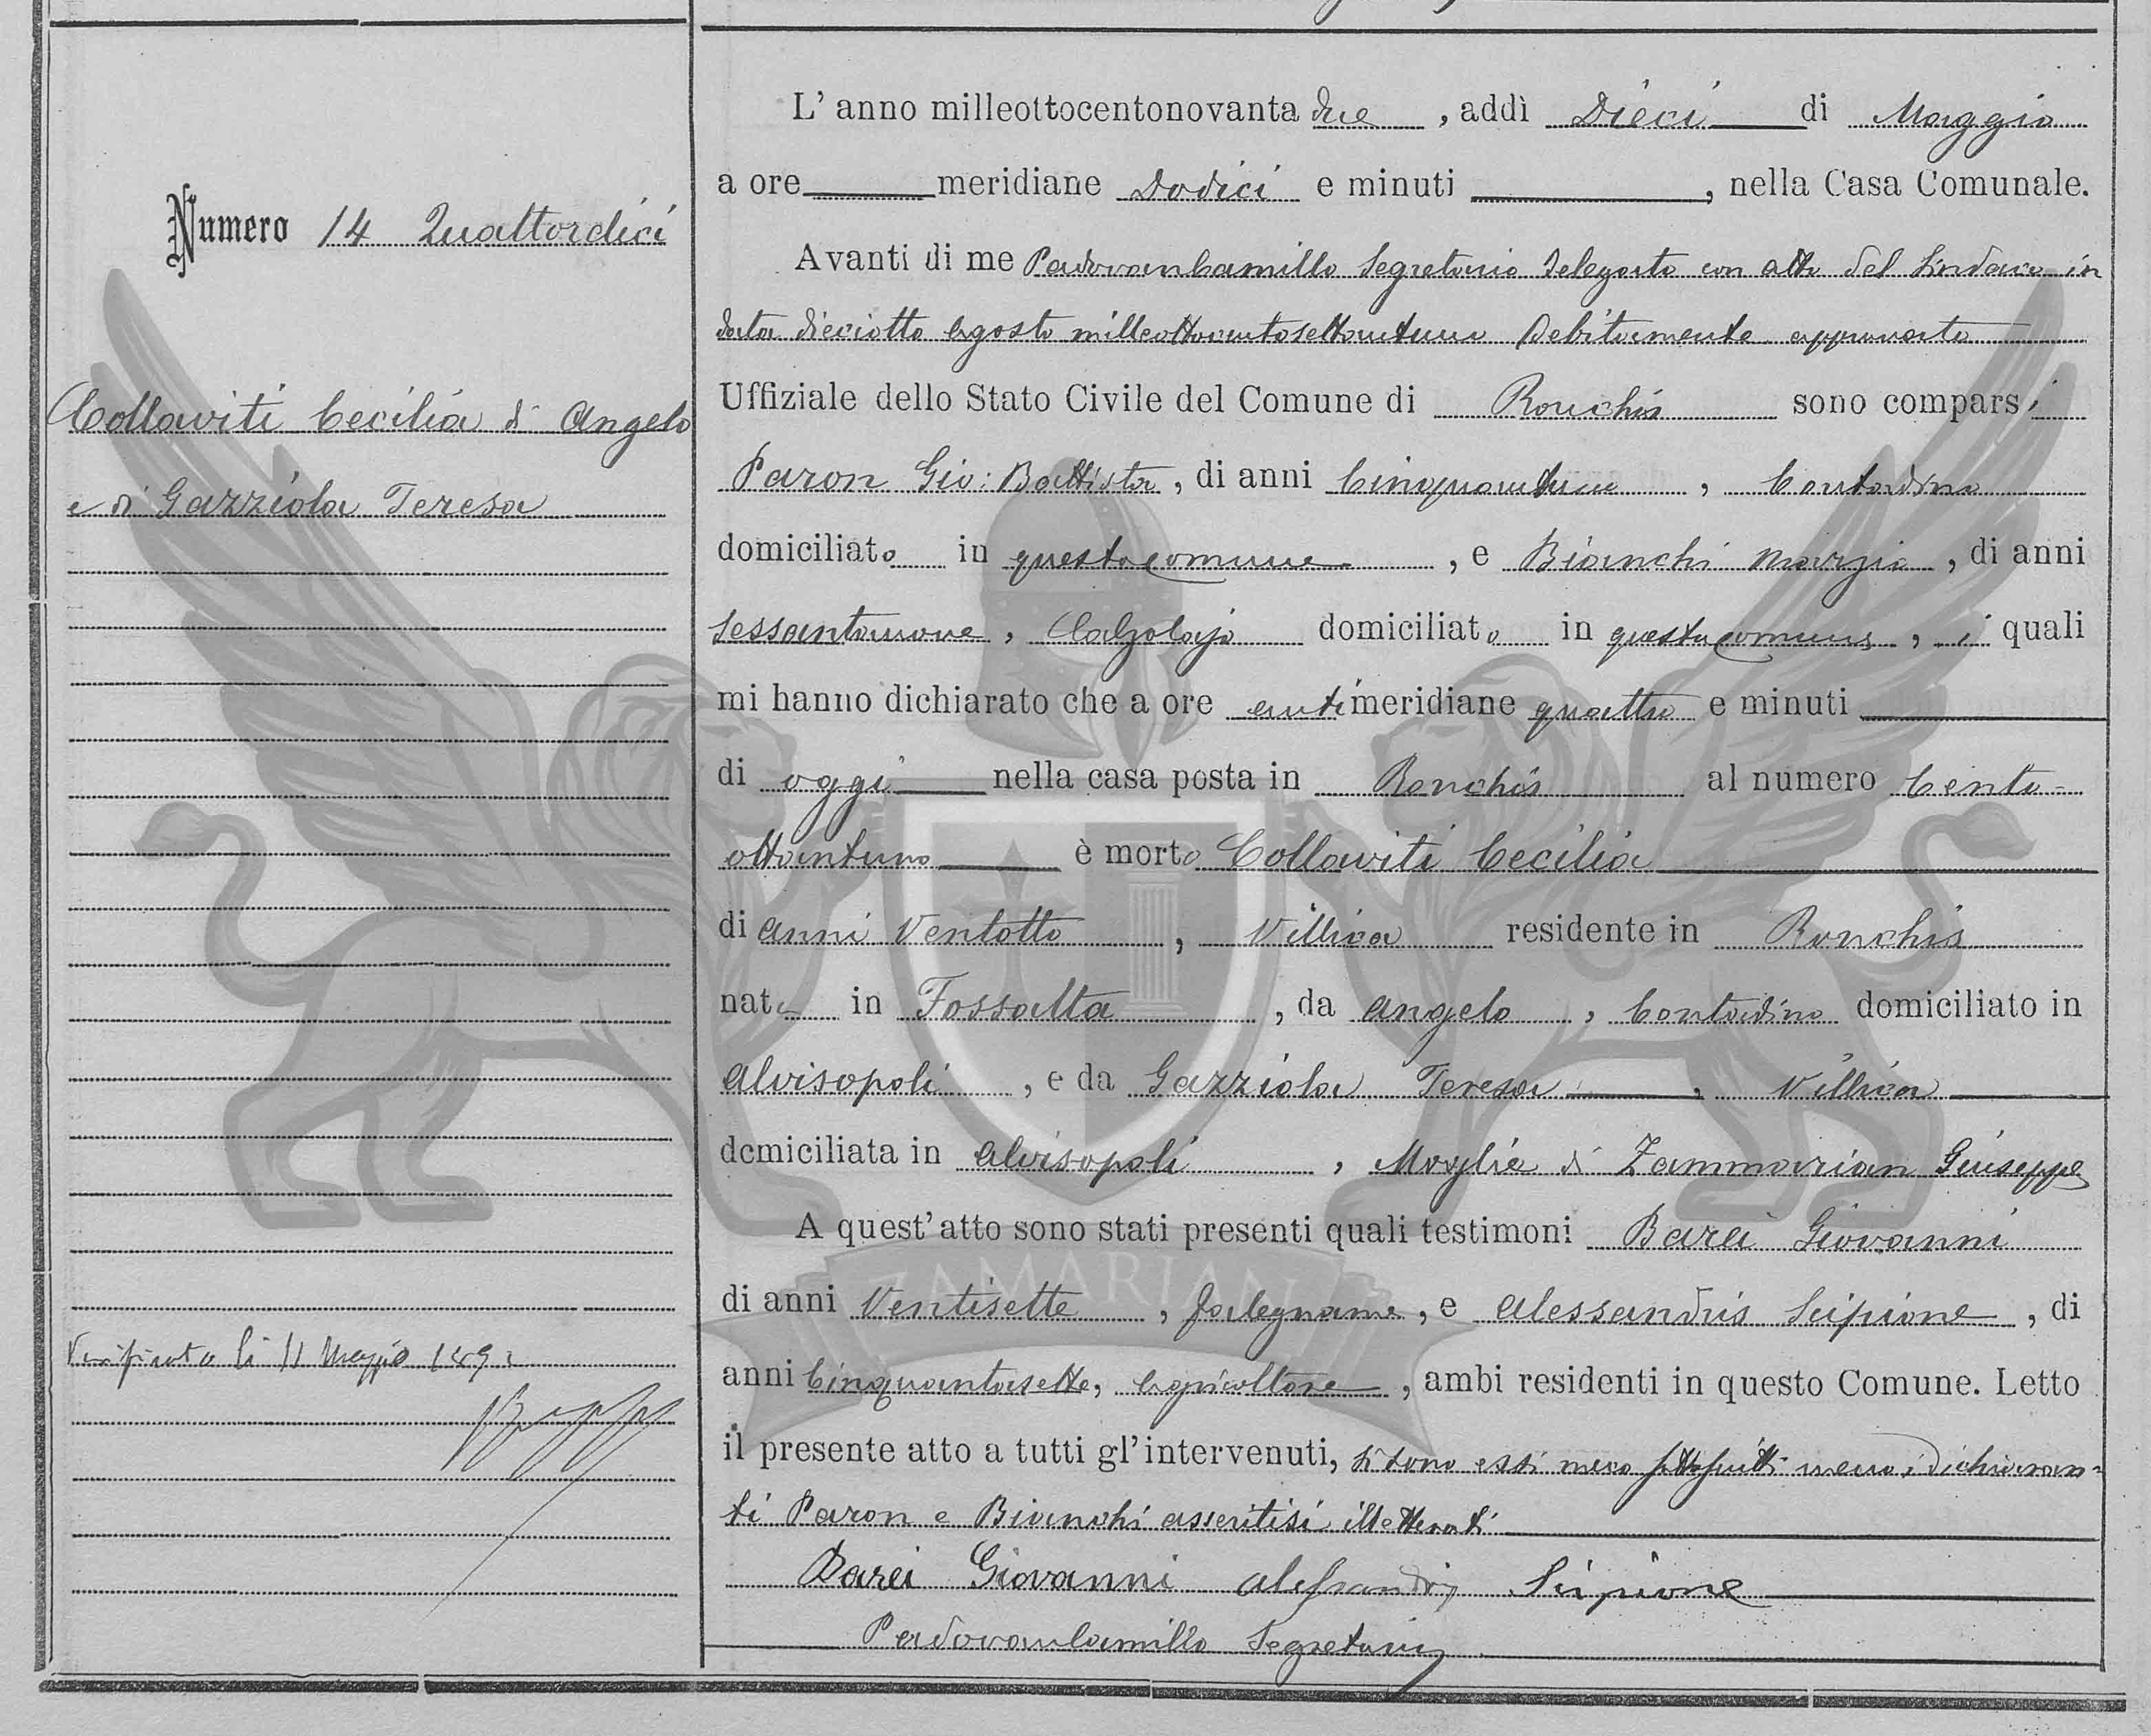 Numero 14 Quattordici
Collaviti Cecilia di Angelo
e di Gazziola Teresa
Verificato li 11 Maggio 1892
L' anno milleottocentonovanta due , addì Dieci di Maggio
a ore meridiane Dodici e minuti , nella Casa Comunale.
Avanti di me Padovan Camillo Segretario delegato con atto del Sindaco in
data dieciotto Agosto milleottocentosettantuno debitamente approvato
Uffiziale dello Stato Civile del Comune di Ronchis sono compars i
Paron Gio: Battista , di anni Cinquantuno , Contadino
domiciliato in questo comune , e Bianchi , di anni
Sessantanove , Calzolajo domiciliato in questo comune , i quali
mi hanno dichiarato che a ore anti meridiane quattro e minuti
di oggi nella casa posta in Ronchis al numero Cento-
ottantuno è morta Collaviti Cecilia
di anni Ventotto , Villica residente in Ronchis
nata in Fossalta , da Angelo , Contadino domiciliato in
Alvisopoli , e da Gazziola Teresa , Villica
domiciliata in Alvisopoli , Moglie di Zammarian Giuseppe
A quest' atto sono stati presenti quali testimoni Barei Giovanni
di anni Ventisette , falegname , e Alessandris Scipione , di
anni Cinquantasette, Agricoltore , ambi residenti in questo Comune. Letto
il presente atto a tutti gl' intervenuti, si sono essi meco sottoscritti meno i dichiaran-
ti Paron e Bianchi assertisi illetterati
Barei Giovanni Alessandris Scipione
Padovan Camillo Segretario
ZAMARIAN